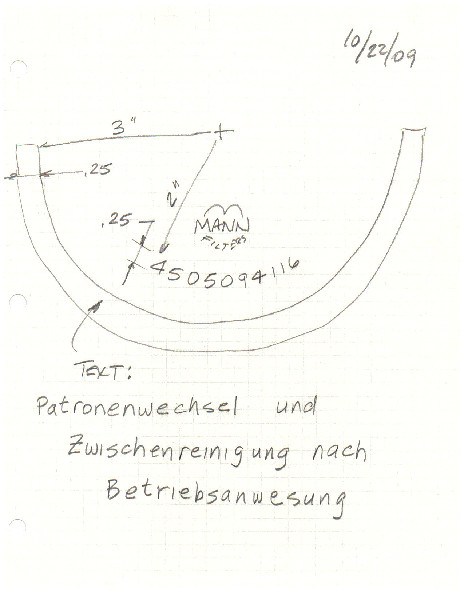 10/22/09
3"
.25
2"
.25
MANN
FILTERS
4505094116
TEXT:
Patronenwechsel und
Zwischenreinigung nach
Betriebsanwesung